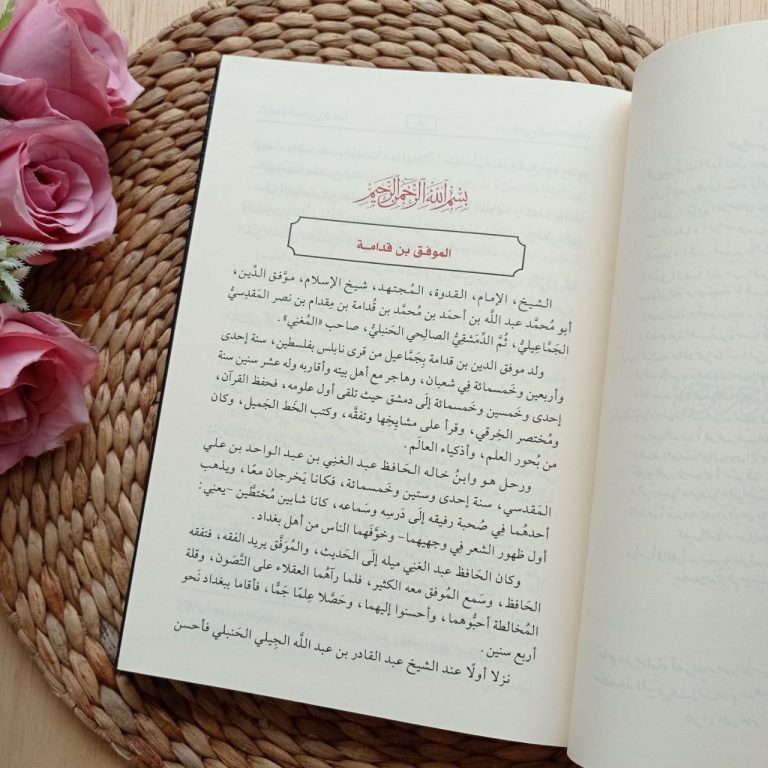 بِسْمِ اللَّهِ الرَّحْمَنِ الرَّحِيمِ
الموفق بن قدامة
الشيخ، الإمام، القدوة، المُجتهد، شيخ الإسلام، موَّفق الدِّين،
أبو مُحمَّد عبد اللَّه بن أحمَد بن مُحمَّد بن قُدامة بن مِقدام بن نصر المَقدِسِيُّ
الجَمَّاعِيليُّ، ثُمَّ الدِّمَشقِيُّ الصالِحِي الحَنبليُّ، صاحب «المُغنِي».
ولد موفق الدين بن قدامة بِجَمَّاعيل من قرى نابلس بفلسطين، سنة إحدى
وأربعين وخَمسمائة فِي شعبان، وهاجر مع أهل بيته وأقاربه وله عشر سنين سنة
إحدى وخَمسين وخَمسمائة إلَى دمشق حيث تلقى أول علومه، فحفظ القرآن،
ومُختصر الخِرقي، وقرأ على مشايِخِها وتفقَّه، وكتب الخَط الجَميل، وكان
من بُحور العلم، وأذكياء العالَم.
ورحل هو وابنُ خاله الحَافظ عبد الغني بن عبد الواحد بن علي
المَقدسي، سنة إحدى وستين وخَمسمائة، فكانا يَخرجان معًا، ويذهب
أحدهُما فِي صُحبة رفيقه إلَى دَرسِه وسَماعه، كانا شابين مُختطَّين -يعني:
أول ظهور الشعر في وجهيهما- وخوَّفَهما الناس من أهل بغداد.
وكان الحَافظ عبد الغني ميله إلَى الحَديث، والمُوفَّق يريد الفقه، فتفقه
الحَافظ، وسَمع المُوفق معه الكثير، فلما رآهُما العقلاء على التَّصَون، وقلة
المُخالطة أحبُّوهما، وأحسنوا إليهما، وحَصَّلا عِلمًا جَمًّا، فأقاما ببغداد نَحو
أربع سنين.
نزلا أولًا عند الشيخ عبد القادر بن عبد اللَّه الجِيلي الحَنبلي فأحسن